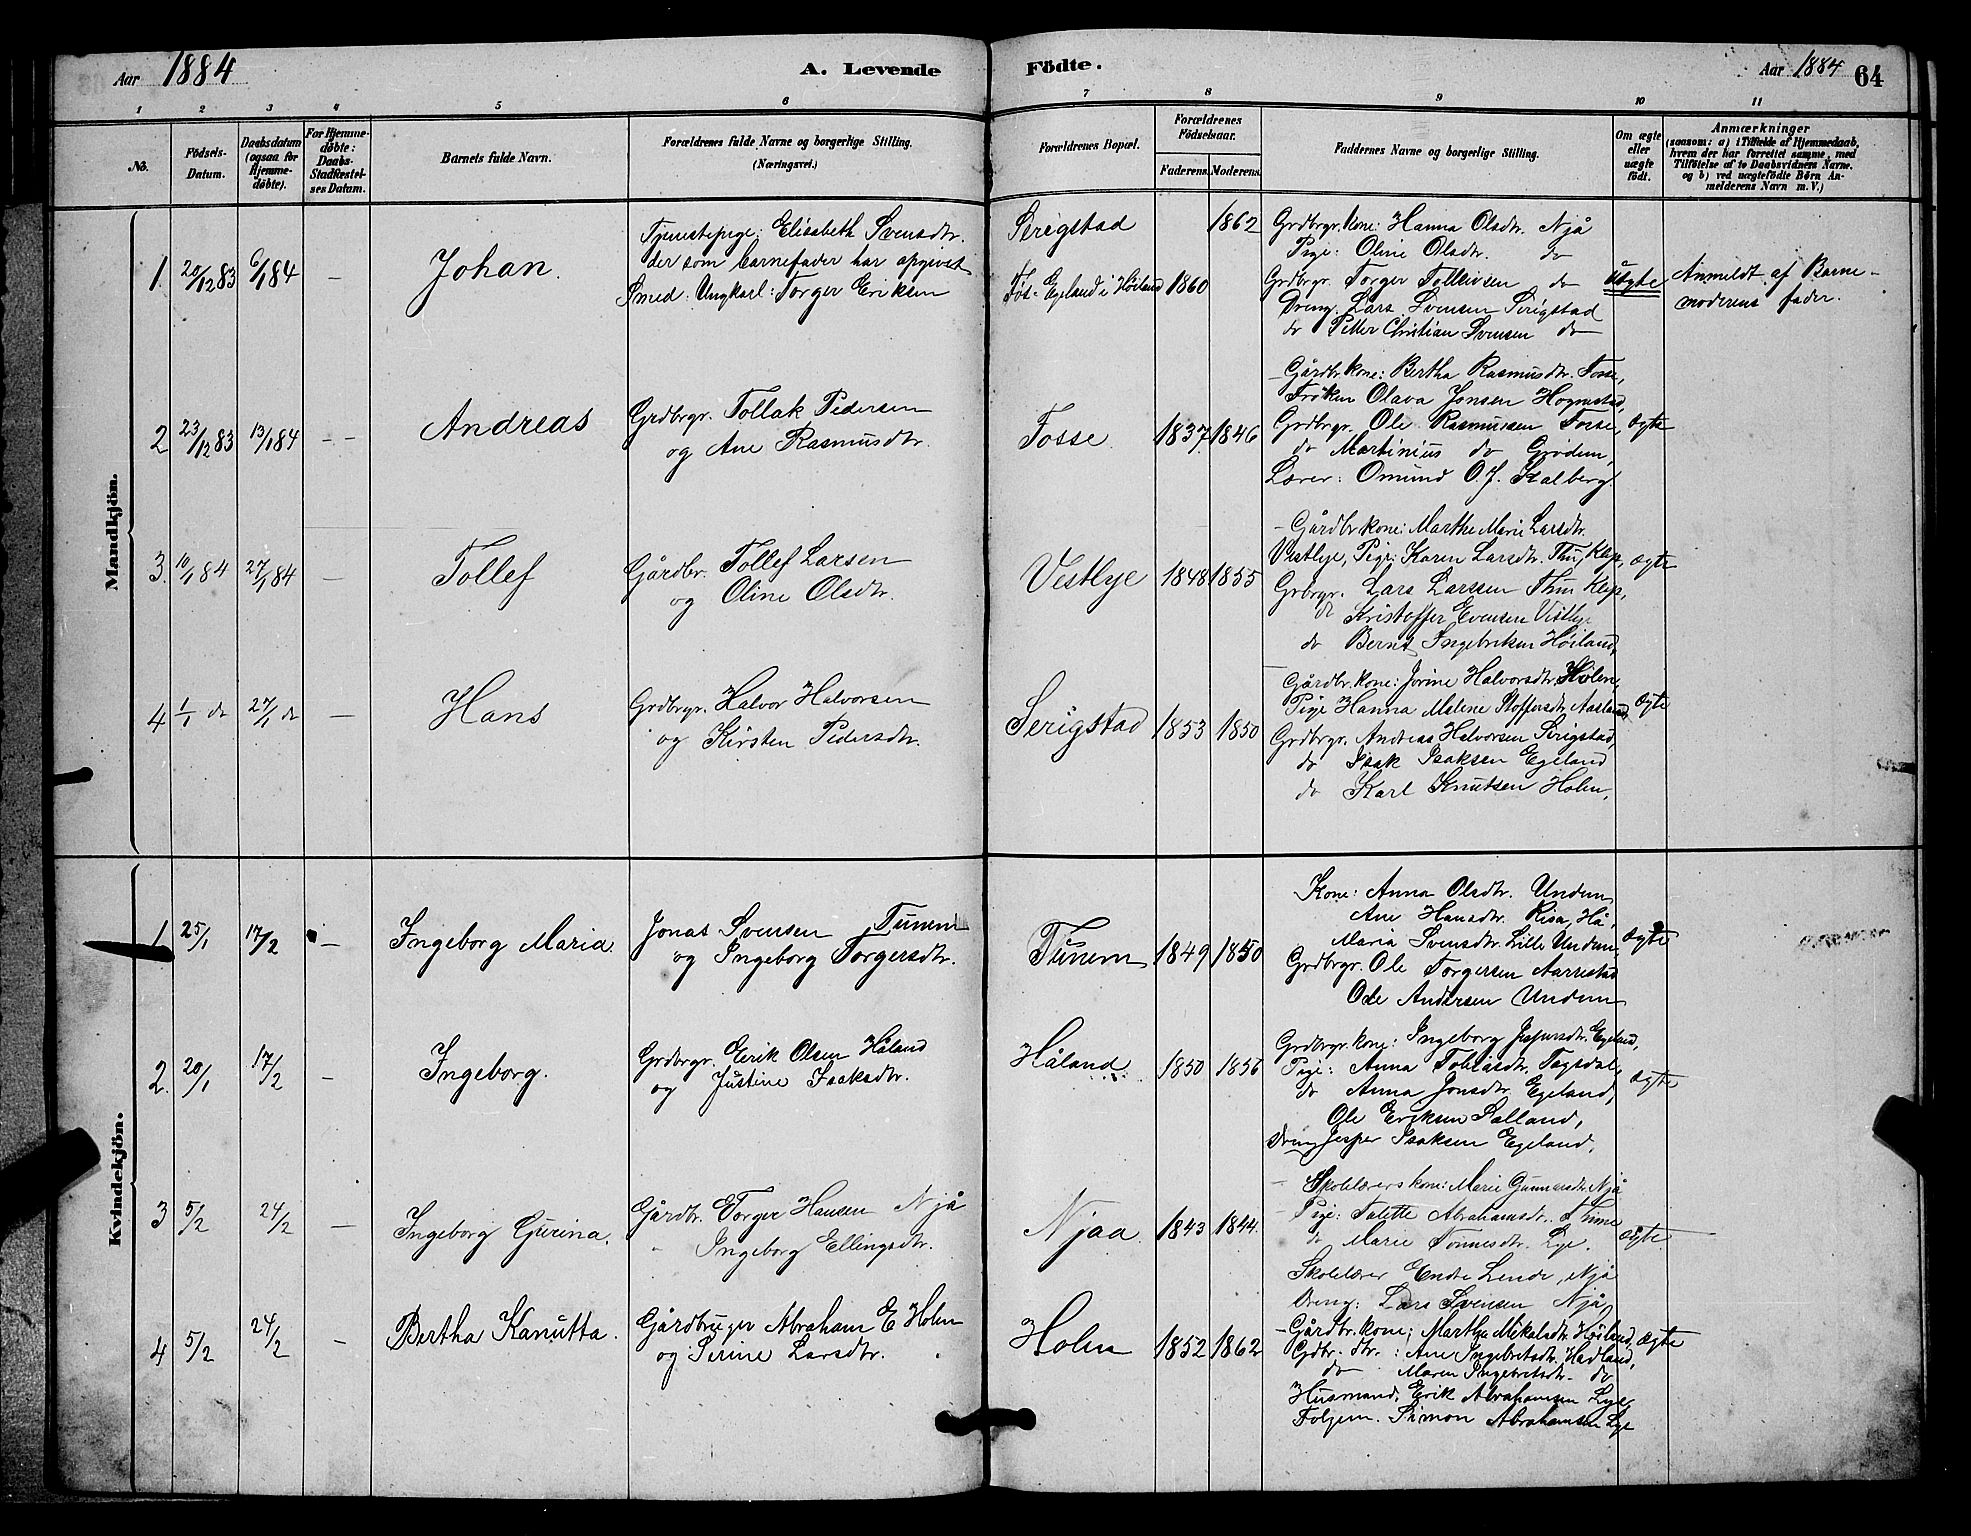 Aar 1884
A. Levende Födte.
Aar 1884 64
1 2 3 4 5 6 7 8 9 10 11
No.
Födsels-Datum.
Daabsdatum (ogsaa for Hjemmedöbte).
For Hjemmedöbte: Daabs-Stadfæstelses Datum.
Barnets fulde Navn.
Forældrenes fulde Navne og borgerlige Stilling. (Næringsvei.)
Forældrenes Bopæl.
Forældrenes Födselsaar.
Faderens. Moderens.
Faddernes Navne og borgerlige Stilling.
Om ægte eller uægte födt.
Anmærkninger
(saasom: a) i Tilfælde af Hjemmedaab, hvem der har forrettet samme, med Tilföielse af to Daabsvidners Navne. og b) ved uægtefödte Börn Anmelderens Navn m. V.)
Mandkjön.
1. 20/12 83 6/1 84 — Johan.
Tjenestepige: Elisabeth Svensdtr.
der som barnefader har opgivet
Smed. Ungkarl: Torger Eriksen
Serigstad 1862
Egeland i Höiland 1860
Grdbrgr. kone: Hanna Olsdtr. Njå
Pige: Oline Olsdtr. do
Grdbrgr. Torger Tollevsen do
Dreng. Lars Svensen Serigstad
do Petter Christian Svensen do
Uægte
Anmeldt af Barne-
moderens fader.
2 23/12 83 13/1 84 -- Andreas
Grdbrgr. Tollak Pedersen
og Ane Rasmusdtr.
Fosse. 1837. 1846
Gårdbr. kone: Bertha Rasmusdtr. Fosse,
Fröken Olava Jonsen Hognestad,
Grdbrgr. Ole Rasmussen Fosse,
do Martinius do Grödem,
Lærer: Omund O. J. Kalberg.
ægte
3. 10/1 84 27/1 84 — Tollef
Gårdbr. Tollef Larsen
og Oline Olsdtr.
Vestlye 1848 1855
- Gårdbr kone: Marthe Marie Larsdtr.
Vestlye, Pige: Karen Larsdtr. Thu, Klep,
Grbrgr. Lars Larssen Thu Klep,
do Kristoffer Evensen Vestlye
do Bernt Ingebriksen Höiland,
ægte
4 1/1 do 27/1 do — Hans
Grdbrgr. Halvor Halvorsen
og Kirsten Pedersdtr.
Serigstad 1853 1850
Gårdbr. kone: Jorine Halvorsdtr. Holen,
Pige Hanna Malene Stoffersdtr. Aasland
Grdbrgr. Andreas Halvorsen Serigstad,
do Isak Isaksen Egeland
do Karl Knutsen Holen,
ægte
Kvindekjön.
1 25/1 17/2 — Ingeborg Maria
Jonas Svensen Tunem
og Ingeborg Torgersdtr.
Tunem 1849 1850
Kone: Anna Olsdtr. Undem
Ane Hansdtr. Risa, Hå,
Maria Svensdtr. Lille Undem,
Grdbrgr. Ole Torgersen Aarrestad
Ole Andersen Undem
ægte
2. 20/1 17/2 — Ingeborg.
Grdbrgr. Erik Olsen Håland
og Justine Isaksdtr.
Håland 1850 1856
Grdbrgr. kone: Ingeborg Jespersdtr. Egeland,
Pige: Anna Tobiasdtr. Tagsdal,
do Anna Jonsdtr. Egeland,
Ole Eriksen Salland,
Dreng Jesper Isaksen Egeland.
ægte
3 5/2 24/2 — Ingeborg Gurina.
Gårdbr. Torger Hansen Njå
Ingeborg Ellingsdtr.
Njaa. 1843 1844
- Skolelærers kone: Marie Gunnarsdtr. Njå
Pige: Talette Abrahamsdtr. Finne
do Marie Tönnesdtr. Lye.
Skolelærer Endre Lende, Njå
Dreng: Lars Svensen Njå
ægte.
4 5/2 24/2 — Bertha Kanutta.
Gårdbruger Abraham E Holen
og Serine Larsdtr.
Holen 1852 1862
- Gårdbr. kone: Martha Mikalsdtr. Höiland,
Gdbr. dtr. : Ane Ingebretsdtr. Hadland,
do Maren Ingebretsdtr. do
Husmand. Erik Abrahamsen Lye
Folgem. Simon Abrahamsen Lye
ægte